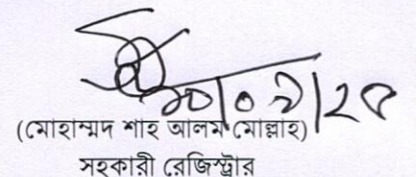 (মোহাম্মদ শাহ আলম মোল্লাহ)
সহকারী রেজিস্ট্রার